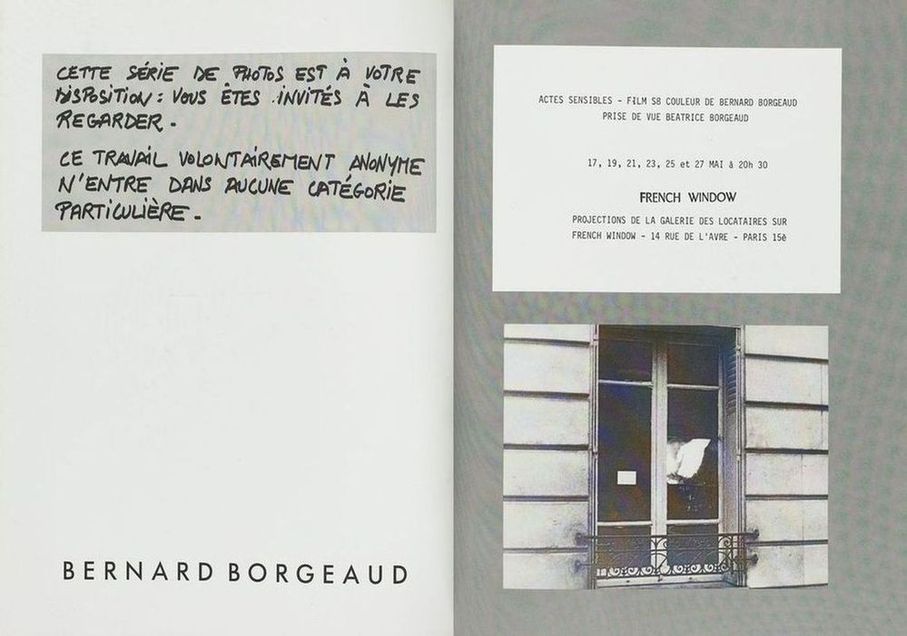 CETTE SÉRIE DE PHOTOS EST À VOTRE
DISPOSITION : VOUS ÊTES INVITÉS À LES
REGARDER.
CE TRAVAIL VOLONTAIREMENT ANONYME
N'ENTRE DANS AUCUNE CATÉGORIE
PARTICULIÈRE.
BERNARD BORGEAUD
ACTES SENSIBLES - FILM S8 COULEUR DE BERNARD BORGEAUD
PRISE DE VUE BEATRICE BORGEAUD
17, 19, 21, 23, 25 et 27 MAI à 20h 30
FRENCH WINDOW
PROJECTIONS DE LA GALERIE DES LOCATAIRES SUR
FRENCH WINDOW - 14 RUE DE L'AVRE - PARIS 15è